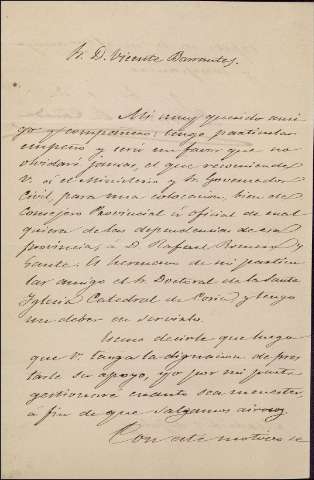 Sr. D. Vicente Barrantes.
Mi muy querido ami-
go y compañero: tengo particular
empeño y será un favor que no
olvidaré jamas, el que recomiende
V. á el Ministerio y Sr. Governador
Civil, para una colocacion, bien de
Consejero Provincial ú oficial de cual
quiera de las dependencias de esa
provincia, á D. Rafael Romero y
Gante. Es hermano de mi particu
lar amigo el Sr. Doctoral de la Santa
Iglesia Catedral de Coria y tengo
un deber en servirlo.
decirte que luego
que V. tenga la dignacion de pres
tarle su apoyo, yo por mi parte
gestionaré cuanto sea menester
a fin de que salgamos airosos
Con este motivo se